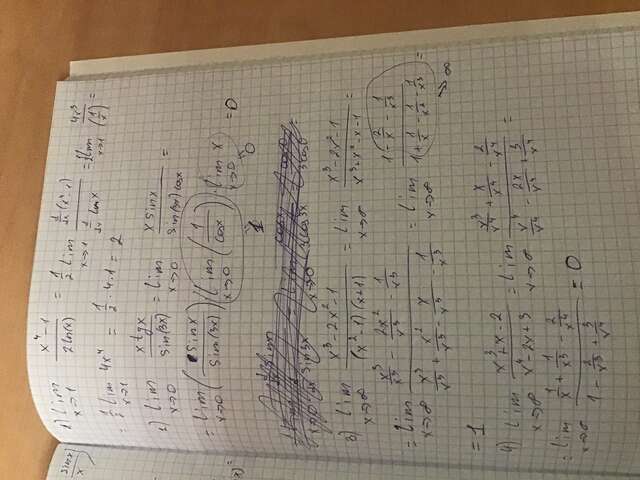 1) lim x→1 (x⁴-1)/(2ln(x)) = 1/2 lim x→1 (d/dx (x⁴-1))/(d/dx ln x) = 1/2 lim x→1 4x³/(1/x) =
= 1/2 lim x→1 4x⁴ = 1/2 · 4 · 1 = 2
2) lim x→0 (x tgx)/(sin(3x)) = lim x→0 (x sinx)/(sin(3x) cosx) =
= lim x→0 (sinx/sin(3x)) (lim x→0 (1/cosx)) · lim x→0 x = 0
1 0
3) lim x→∞ (x³-2x²-1)/((x²-1)(x+1)) = lim x→∞ (x³-2x²-1)/(x³+x²-x-1) =
= lim x→∞ (x³/x³ - 2x²/x³ - 1/x³)/(x³/x³ + x²/x³ - x/x³ - 1/x³) = lim x→∞ (1 - 2/x - 1/x³)/(1 + 1/x - 1/x² - 1/x³) =
→ ∞
= 1
4) lim x→∞ (x³+x-2)/(x⁴-2x+3) = lim x→∞ (x³/x⁴ + x/x⁴ - 2/x⁴)/(x⁴/x⁴ - 2x/x⁴ + 3/x⁴) =
= lim x→∞ (1/x + 1/x³ - 2/x⁴)/(1 - 2/x³ + 3/x⁴) = 0